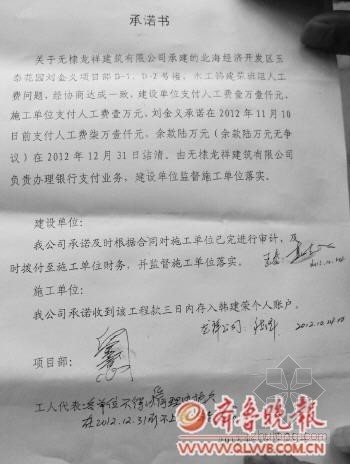 承诺书
关于无棣龙祥建筑有限公司承建的北海经济开发区玉
泰花园刘金义项目部D-1、D-2号楼，木工韩建荣班组人工
费问题，经协商达成一致，建设单位支付人工费壹万壹仟元、
施工单位支付人工费壹万元，刘金义承诺在2012年11月10
日前支付人工费柒万壹仟元，余款陆万元（余款陆万元无争
议）在2012年12月31日结清。由无棣龙祥建筑有限公司
负责办理银行支付业务，建设单位监督施工单位落实。
建设单位：
我公司承诺及时根据合同对施工单位已完进行审计，及
时拨付至施工单位财务，并监督施工单位落实。
2012.10.24
施工单位：
我公司承诺收到该工程款三日内存入韩建荣个人账户。
龙祥公司： 2012.10.24
项目部：
工人代表：各单位不得以
在2012.12.31前不上
齐鲁晚报
WWW.QLWB.COM.CN